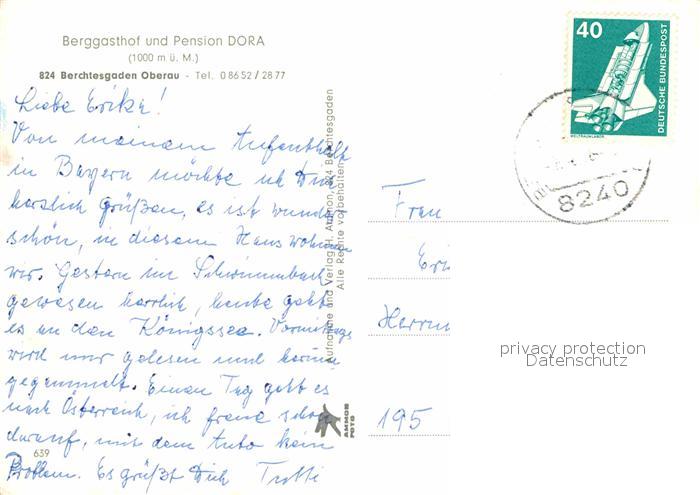 Berggasthof und Pension DORA
(1000 m ü. M.)
824 Berchtesgaden Oberau - Tel. 0 86 52 / 28 77
Liebe Erika!
Von meinem Aufenthalt
in Bayern möchte ich Dich
herzlich grüßen, es ist wunder
schön, in diesem Haus wohnen
wir. Gestern im Schwimmbad
gewesen herrlich, heute geht
es an den Königssee. Vormittags
wird nur gelesen und herum
gegammelt. Einen Tag geht es
nach Österreich, ich freue schon
darauf, mit dem Auto kein
Problem. Es grüßt Dich Trotti
639
Aufnahme und Verlag H. Ammon, 824 Berchtesgaden
Alle Rechte vorbehalten
AMMON
FOTO
40
DEUTSCHE BUNDESPOST
WELTRAUMLABOR
8240
Frau
Eri
Herrn
195
privacy protection
Datenschutz